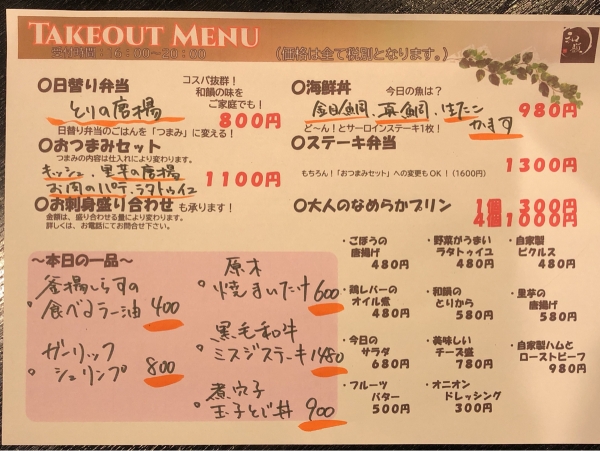 TAKEOUT MENU
受付時間：16：00～20：00
（価格は全て税別となります。）
和韻
〇日替り弁当
コスパ抜群！
和韻の味を
ご家庭でも！
とりの唐揚
800円
日替り弁当のごはんを「つまみ」に変える！
〇おつまみセット
つまみの内容は仕入れにより変わります。
キッシュ、里芋の唐揚
お肉のパテ、ラタトゥイユ
1100円
〇お刺身盛り合わせ も承ります！
金額は、盛り合わせる量により変わります。
詳しくは、お電話にてお問合せ下さい。
〇海鮮丼
今日の魚は？
金目鯛、真鯛、ほたて
かます
980円
ど～ん！とサーロインステーキ1枚！
〇ステーキ弁当
1300円
もちろん！「おつまみセット」への変更もOK！（1600円）
〇大人のなめらかプリン
1個 300円
4個1000円
～本日の一品～
釜揚しらすの
食べるラー油 400
ガーリック
シュリンプ 800
原木
焼まいたけ 600
黒毛和牛
ミスジステーキ 1480
煮穴子
玉子とじ丼 900
・ごぼうの
唐揚げ
480円
・野菜がうまい
ラタトゥイユ
480円
・自家製
ピクルス
480円
・鶏レバーの
オイル煮
480円
・和韻の
とりから
580円
・里芋の
唐揚げ
580円
・今日の
サラダ
680円
・美味しい
チーズ盛
780円
・自家製ハムと
ローストビーフ
980円
・フルーツ
バター
500円
・オニオン
ドレッシング
300円